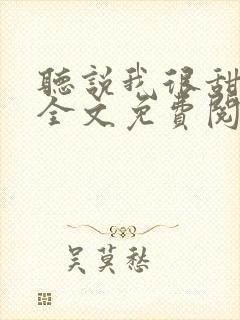 聽說我很甜
全文免費閱
吳莫愁